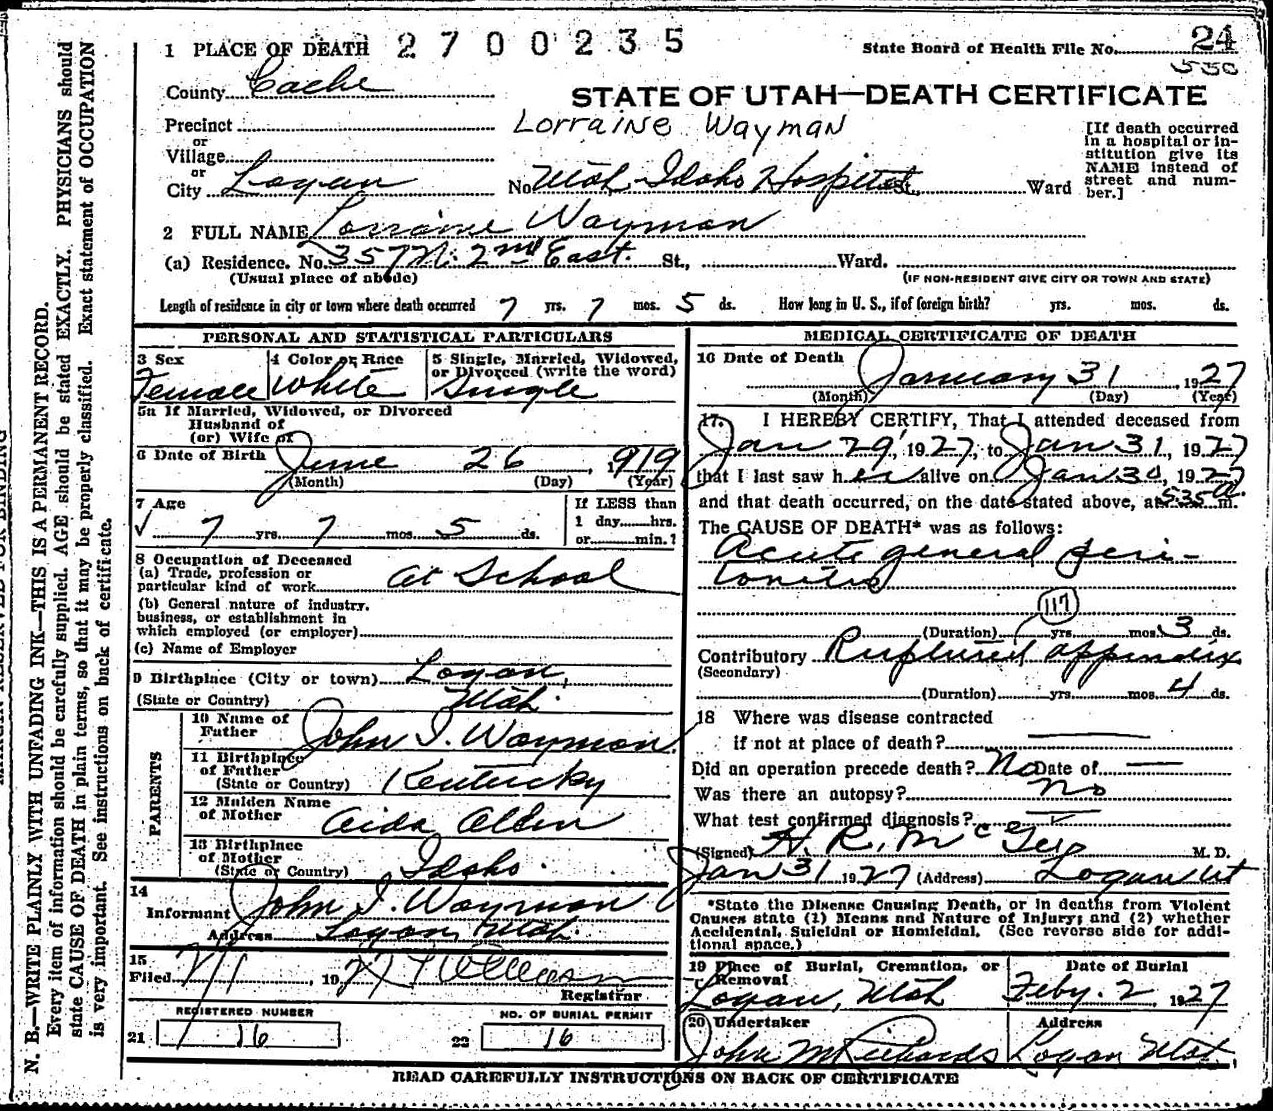 1 PLACE OF DEATH 2700235 State Board of Health File No. 24
County Cache 550
STATE OF UTAH—DEATH CERTIFICATE
Precinct Lorraine Wayman
or
Village
or
City Logan No. Utah-Idaho Hospital St., Ward
[If death occurred
in a hospital or in-
stitution give its
NAME instead of
street and num-
ber.]
2 FULL NAME Lorraine Wayman
(a) Residence. No. 357 N. 2nd East. St., Ward.
(Usual place of abode) (IF NON-RESIDENT GIVE CITY OR TOWN AND STATE)
Length of residence in city or town where death occurred 7 yrs. 7 mos. 5 ds. How long in U. S., if of foreign birth? yrs. mos. ds.
PERSONAL AND STATISTICAL PARTICULARS
3 Sex 4 Color or Race 5 Single, Married, Widowed,
or Divorced (write the word)
Female White Single
5a If Married, Widowed, or Divorced
Husband of
(or) Wife of
6 Date of Birth June 26, 1919
(Month) (Day) (Year)
7 Age If LESS than
7 yrs. 7 mos. 5 ds. 1 day hrs.
or min.?
8 Occupation of Deceased
(a) Trade, profession or
particular kind of work At School
(b) General nature of industry,
business, or establishment in
which employed (or employer)
(c) Name of Employer
9 Birthplace (City or town) Logan,
(State or Country) Utah.
PARENTS
10 Name of
Father John I. Wayman
11 Birthplace
of Father
(State or Country) Kentucky
12 Maiden Name
of Mother Aida Allen
13 Birthplace
of Mother
(State or Country) Idaho.
14
Informant John I. Wayman
Address Logan, Utah.
15
Filed 2/1, 1927
Registrar
REGISTERED NUMBER NO. OF BURIAL PERMIT
21 16 22 16
MEDICAL CERTIFICATE OF DEATH
16 Date of Death January 31, 1927
(Month) (Day) (Year)
17. I HEREBY CERTIFY, That I attended deceased from
Jan 29, 1927, to Jan 31, 1927
that I last saw her alive on Jan 30, 1927
and that death occurred, on the date stated above, at 5:35 a. m.
The CAUSE OF DEATH* was as follows:
Acute general peri-
tonitis
117
(Duration) yrs. mos. 3 ds.
Contributory Ruptured appendix
(Secondary)
(Duration) yrs. mos. 4 ds.
18 Where was disease contracted
if not at place of death?
Did an operation precede death? No Date of —
Was there an autopsy? No
What test confirmed diagnosis?
(Signed) H. R. McGee M. D.
Jan 31 1927 (Address) Logan Ut
*State the Disease Causing Death, or in deaths from Violent
Causes state (1) Means and Nature of Injury; and (2) whether
Accidental, Suicidal or Homicidal. (See reverse side for addi-
tional space.)
19 Place of Burial, Cremation, or Date of Burial
Removal
Logan, Utah Feby. 2, 1927
20 Undertaker Address
John M Richards Logan Utah.
READ CAREFULLY INSTRUCTIONS ON BACK OF CERTIFICATE
N. B.—WRITE PLAINLY WITH UNFADING INK—THIS IS A PERMANENT RECORD.
Every item of information should be carefully supplied. AGE should be stated EXACTLY. PHYSICIANS should
state CAUSE OF DEATH in plain terms, so that it may be properly classified. Exact statement of OCCUPATION
is very important. See instructions on back of certificate.